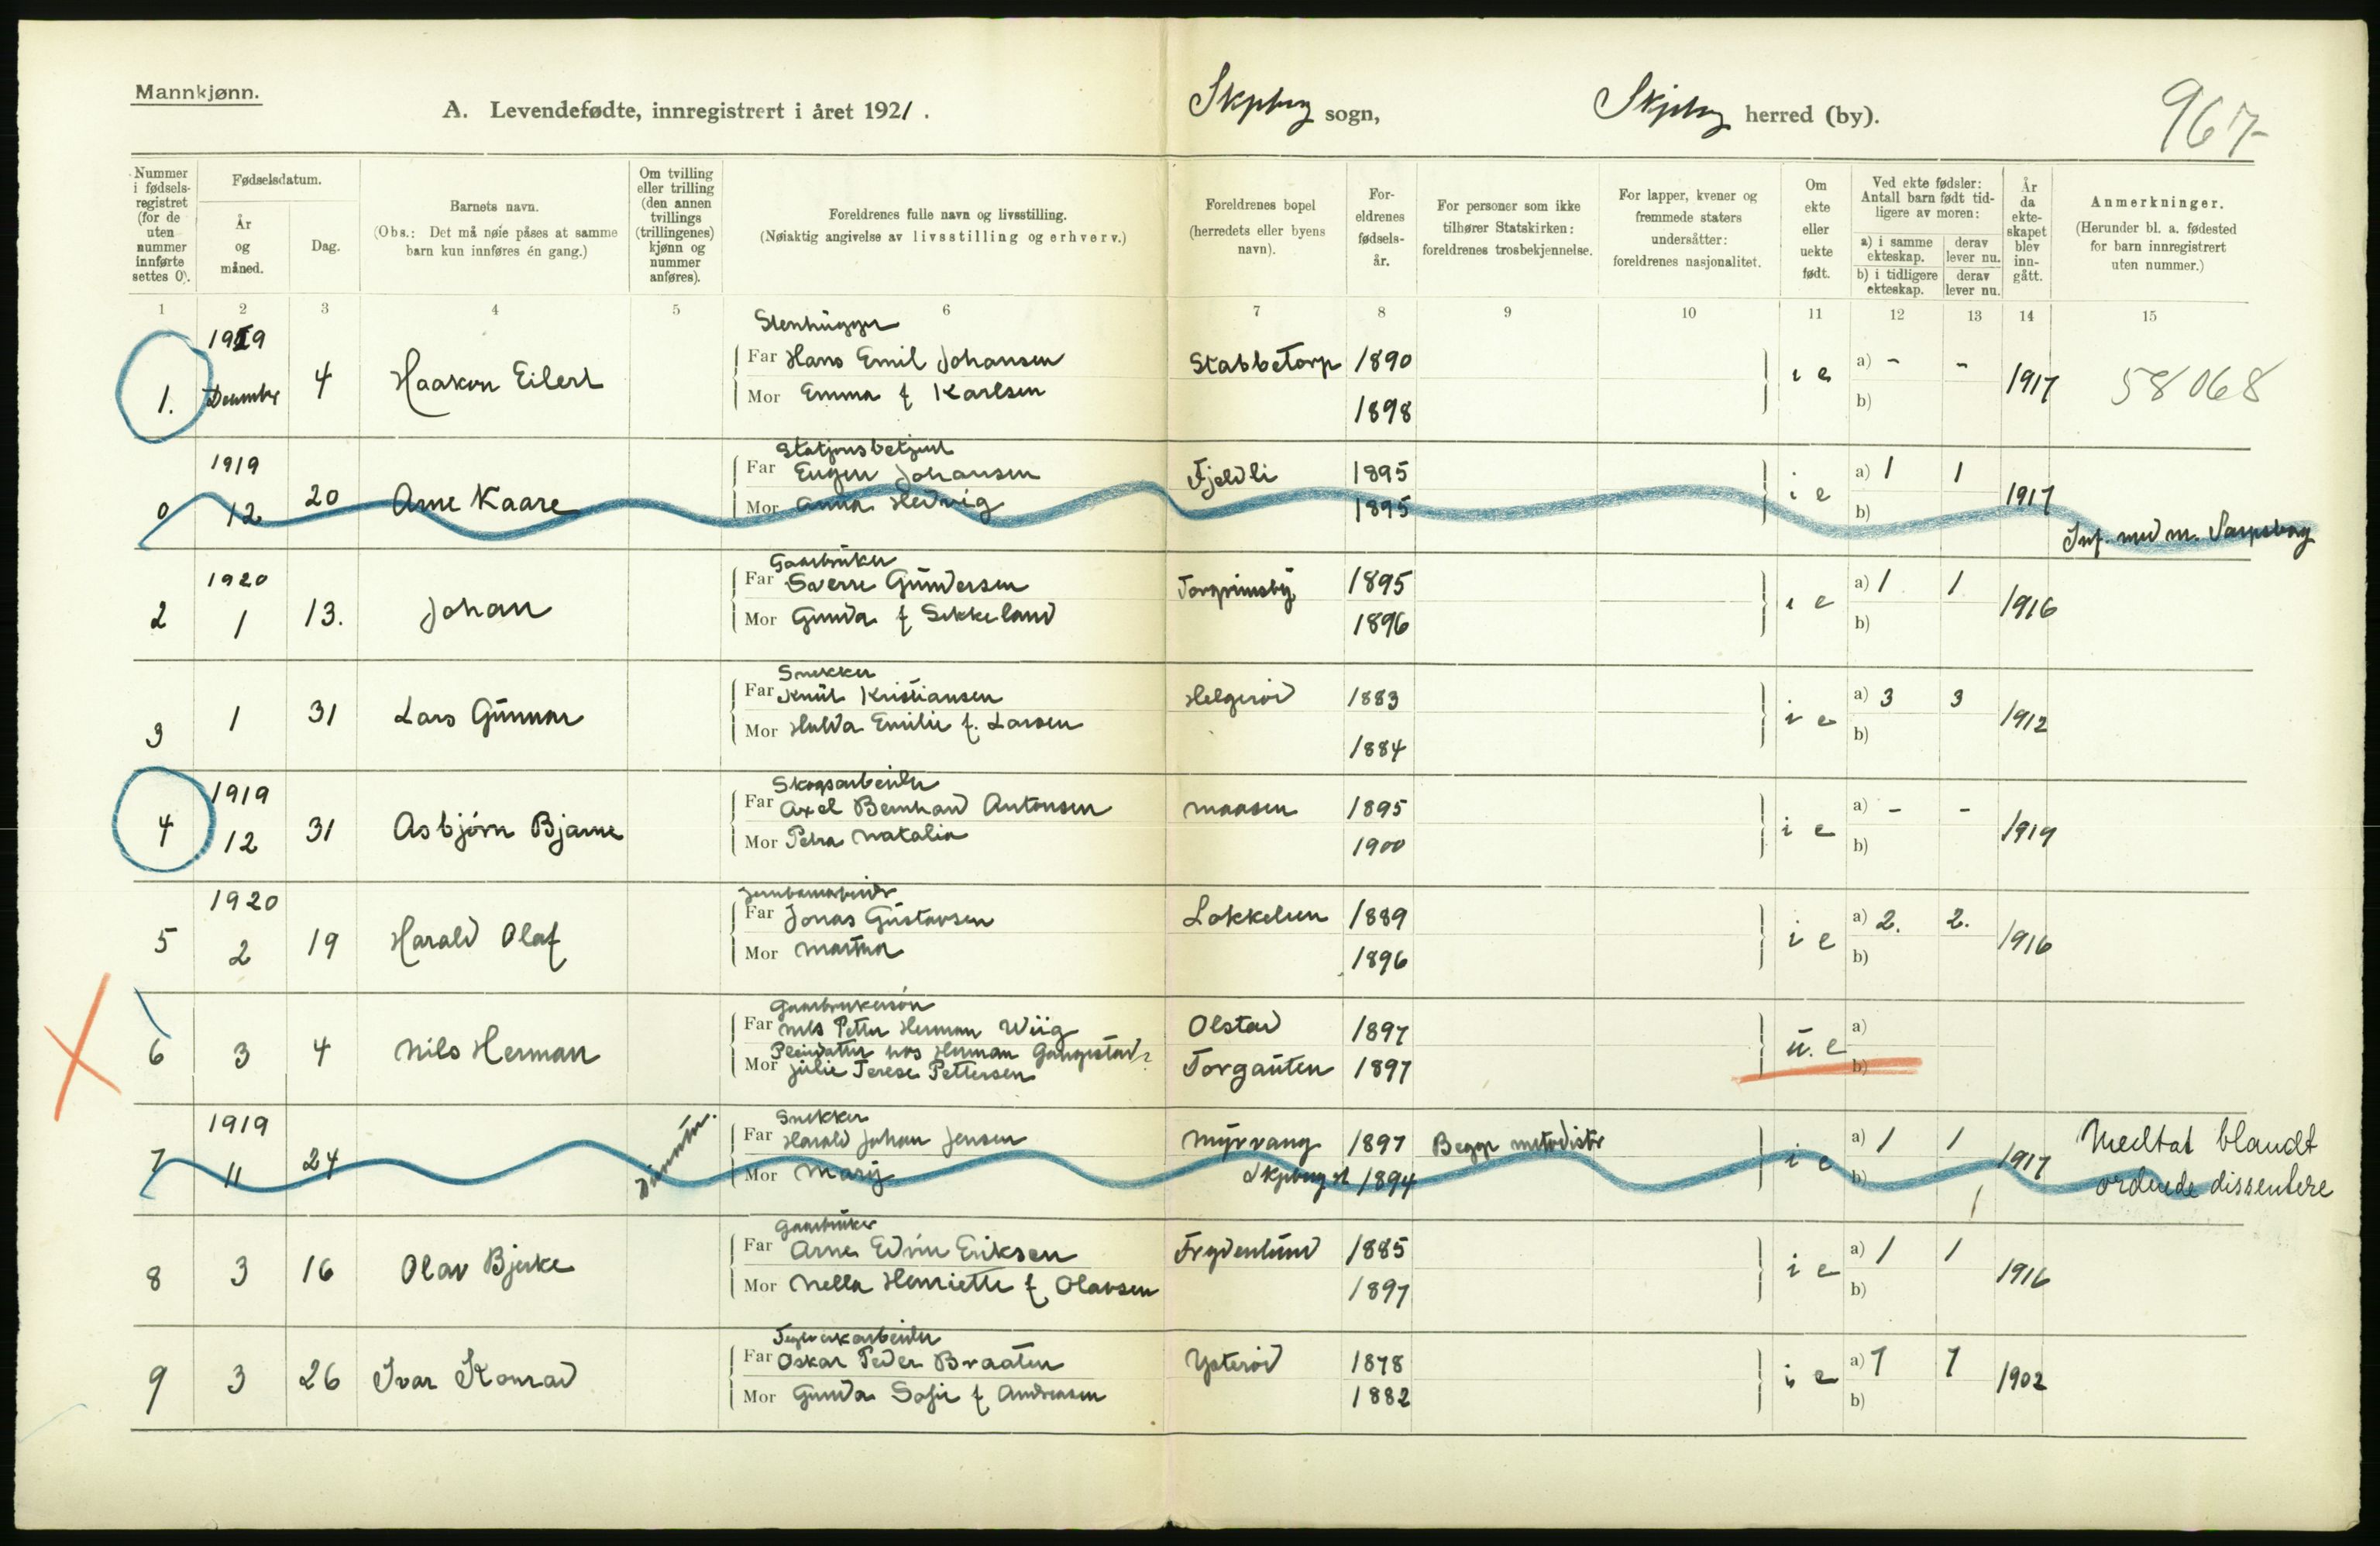 Mannkjønn.
A. Levendefødte, innregistrert i året 1921.
sogn,
herred (by).
967
Nummer i fødsels-registret (for de uten nummer innførte settes 0).
Fødselsdatum.
År og måned.
Dag.
Barnets navn.
(Obs.: Det må nøie påses at samme barn kun innføres én gang.)
Om tvilling eller trilling (den annen tvillings (trillingenes) kjønn og nummer anføres).
Foreldrenes fulle navn og livsstilling.
(Nøiaktig angivelse av livsstilling og erhverv.)
Foreldrenes bopel (herredets eller byens navn).
For-eldrenes fødsels-år.
For personer som ikke tilhører Statskirken: foreldrenes trosbekjennelse.
For lapper, kvener og fremmede staters undersåtter: foreldrenes nasjonalitet.
Om ekte eller uekte født.
Ved ekte fødsler: Antall barn født tid-ligere av moren:
a) i samme ekteskap.
derav lever nu.
b) i tidligere ekteskap.
derav lever nu.
År da ekte-skapet blev inn-gått.
Anmerkninger.
(Herunder bl. a. fødested for barn innregistrert uten nummer.)
1 2 3 4 5 6 7 8 9 10 11 12 13 14 15
1919
Stenhugger
1. December 4 Haakon Eilert
Far Hans Emil Johansen Stabbetorp 1890
Mor Emma f Karlsen 1898
i e a) - - 1917 58068
b)
1919
0 12 20 Arne Kaare
Far Eugen Johansen Fjeldli 1895
Mor Anna Hedvig 1895
i e a) 1 1 1917
b)
Inf. med m. Sarpsborg
1920
Gaarbruker
2 1 13. Johan
Far Sverre Gundersen 1895
Mor Gunda f Sekkeland 1896
i e a) 1 1 1916
b)
Snekker
3 1 31 Lars Gunnar
Far Knut Kristiansen Helgerød 1883
Mor Hulda Emilie f. Larsen 1884
i e a) 3 3 1912
b)
1919
Skogsarbeider
4 12 31 Asbjørn Bjarne
Far Axel Bernhard Antonsen Maasen 1895
Mor Petra Natalia 1900
i e a) - - 1919
b)
1920
5 2 19 Harald Olaf
Far Jonas Gustavsen 1889
Mor Martha 1896
i e a) 2. 2. 1916
b)
Gaarbrukersøn
6 3 4 Nils Herman
Far Nils Petter Herman Wiig Olstad 1897
Mor Julie Terese Pettersen Torgauten 1897
u. e a)
b)
1919
Snekker
7 11 24
Far Harald Johan Jensen Myrvang 1897
Mor Mary 1894
Begge metodister
i e a) 1 1 1917
b)
Medtat blandt
ordnede dissentere
Gaarbruker
8 3 16 Olav Bjerke
Far Arne Edvin Eriksen Frydenlund 1885
Mor Nella Henriette f Olavsen 1897
i e a) 1 1 1916
b)
Teglverkarbeider
9 3 26 Ivar Konrad
Far Oskar Peder Braaten Ysterød 1878
Mor Gunda Sofie f Andreasen 1882
i e a) 7 7 1902
b)